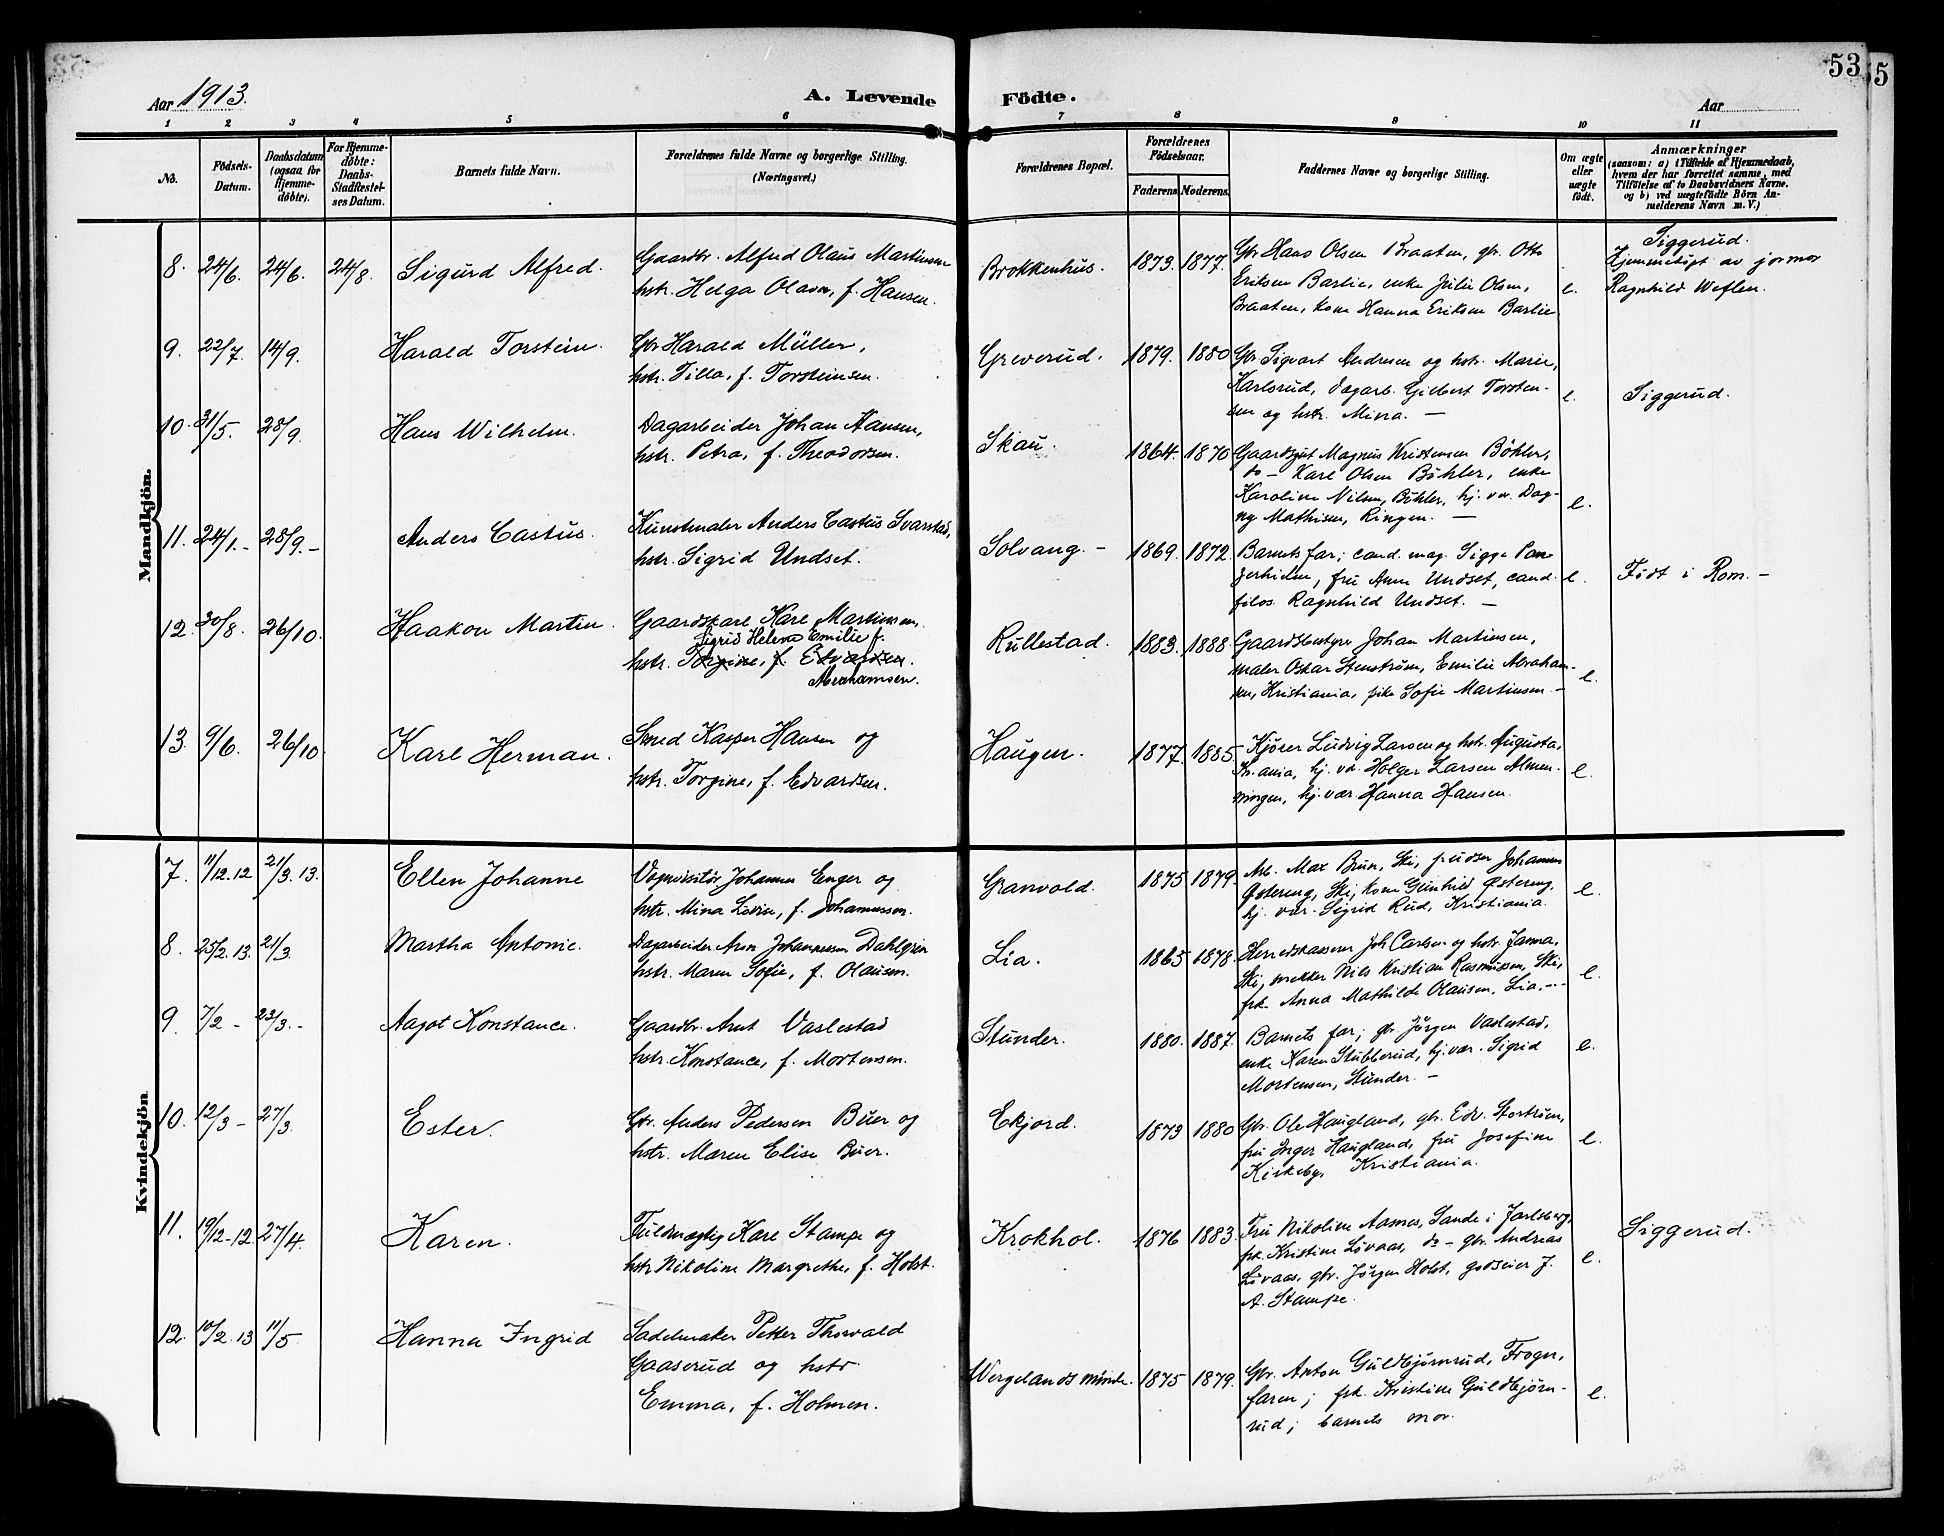 53
55
Aar 1913.
A. Levende Födte.
Aar
1 2 3 4 5 6 7 8 9 10 11
No.
Födsels-Datum.
Daabsdatum (ogsaa for Hjemmedøbte).
For Hjemmedøbte: Daabs-Stadfæstelses Datum.
Barnets fulde Navn.
Forældrenes fulde Navne og borgerlige Stilling.
(Næringsvei.)
Forældrenes Bopæl.
Forældrenes Födselsaar.
Faderens. Moderens.
Faddernes Navne og borgerlige Stilling.
Om ægte eller uægte födt.
Anmærkninger
(saasom: a) i Tilfælde af Hjemmedaab, hvem der har forrettet samme, med Tilföielse af to Daabsvidners Navne. og b) ved uægtefödte Börn Anmelderens Navn m. V.)
Mandkjön.
8. 24/6. 24/6. 24/8. Sigurd Alfred.
Gaardbr. Alfred Olaus Martinsen
hstr. Helga Olava, f. Hansen.
Brokkenhus. 1873. 1877.
Gbr Hans Olsen Braaten, gbr. Otto
Eriksen Barlie, enke Julie Olsen,
Braaten, kone Hanna Eriksen Barlie
e.
Siggerud.
Hjemmedöpt av jormor
Ragnhild Weflen.
9. 22/7. 14/9. Harald Torstein.
Gbr Harald Müller,
hstr. Tilla, f. Torsteinsen.
Greverud. 1879. 1880
Gbr Sigvart Andresen og hstr. Marie,
Karlsrud, dagarb. Gilbert Torsten-
sen og hstr. Mina. —
e.
Siggerud.
10. 31/5. 28/9. Hans Wilhelm.
Dagarbeider Johan Hansen,
hstr. Petra, f. Theodorsen.
Skau. 1864. 1870
Gaardsgut Magnus Kristensen Bøhler,
do — Karl Olsen Bøhler, enke
Karoline Nilsen, Bøhler, hj. vær. Dag-
ny Mathisen, Ringen. —
e.
11. 24/1.- 28/9.- Anders Castus.
Kunstmaler Anders Castus Svarstad,
hstr. Sigrid Undset.
Solvang. - 1869. 1872.
Barnets far; cand. mag. Sigge Pan-
zerhielm, fru Anna Undset, cand.
filos. Ragnhild Undset. —
e.
Födt i Rom. -
12. 30/8. 26/10. Haakon Martin.
Gaardskarl Karl Martinsen,
Sigrid Helene Emilie f.
hstr. Torgine, f. Edvardsen.
Abrahamsen.
Rullestad. 1883. 1888.
Gaardsbestyrer Johan Martinsen,
maler Oskar Stenström, Emilie Abraham-
sen, Kristiania, pike Sofie Martinsen. -
e.
13. 9/6. 26/10 Karl Herman.
Smed Kasper Hansen og
hstr. Torgine, f. Edvardsen.
Haugen. 1877. 1885.
Kjører Ludvig Larsen og hstr. Augusta,
Kr.ania, hj. vær. Holger Larsen Almen-
ningen, hj. vær. Hanna Hansen.
e.
Kvindekjön
7. 11/12.12 21/3.13. Ellen Johanne
Vognvisitør Johannes Enger og
hstr. Mina Lovise, f. Johannessen.
Granvold. 1875 1879.
Arb. Max Brun, Ski, pudser Johannes
Østereng, Ski, kone Gunhild Østereng,
hj. vær. Sigrid Rud, Kristiania.
e.
8. 25/2.13. 21/3. Martha Antonie.
Dagarbeider Aron Johannessen Dahlgren
hstr. Maren Sofie, f. Olausen.
Lia. 1865 1878.
Herredskasserer Joh Carlsen og hstr. Janna,
Ski, snekker Nils Kristian Rasmussen, Ski,
frk. Anna Mathilde Olausen, Lia. --
e.
9. 7/2 - 23/3.- Aagot Konstance.
Gaardbr. Arnt Vaslestad
hstr. Konstance, f. Mortensen.
Stunder. 1880. 1887.
Barnets far; gbr. Jörgen Vaslestad,
enke Karen Stubberud, hj. vær. Sigrid
Mortensen, Stunder. -
e.
10. 12/3 - 27/3. Ester.
Gbr. Anders Pedersen Buer og
hstr. Maren Elise Buer.
Ekjord. 1873 1880
Gbr. Ole Haugland, gbr. Edv. Storström,
fru Inger Haugland, fru Josefine
Kirkeby, Kristiania.
e.
11. 19/12-12 27/4. Karen.
Fuldmægtig Karl Stampe og
hstr Nikoline Margrethe, f. Holst.
Krokhol. 1876 1883.
Fru Nikoline Aasnes, Sande i Jarlsberg,
frk. Kristine Løvaas, do - gbr. Andreas
Løvaas, gbr. Jørgen Holst, godseier J.
A. Stampe.
e.
Siggerud.
12. 10/2.13 11/5 Hanna Ingrid
Sadelmaker Petter Thorvald
Gaaserud og hstr
Emma, f. Holmen.
Wergelands minde. 1875 1879.
Gbr. Anton Guldbjørnrud, Frogn,
faren; frk. Kristine Guldbjørn-
rud; barnets mor.
e.